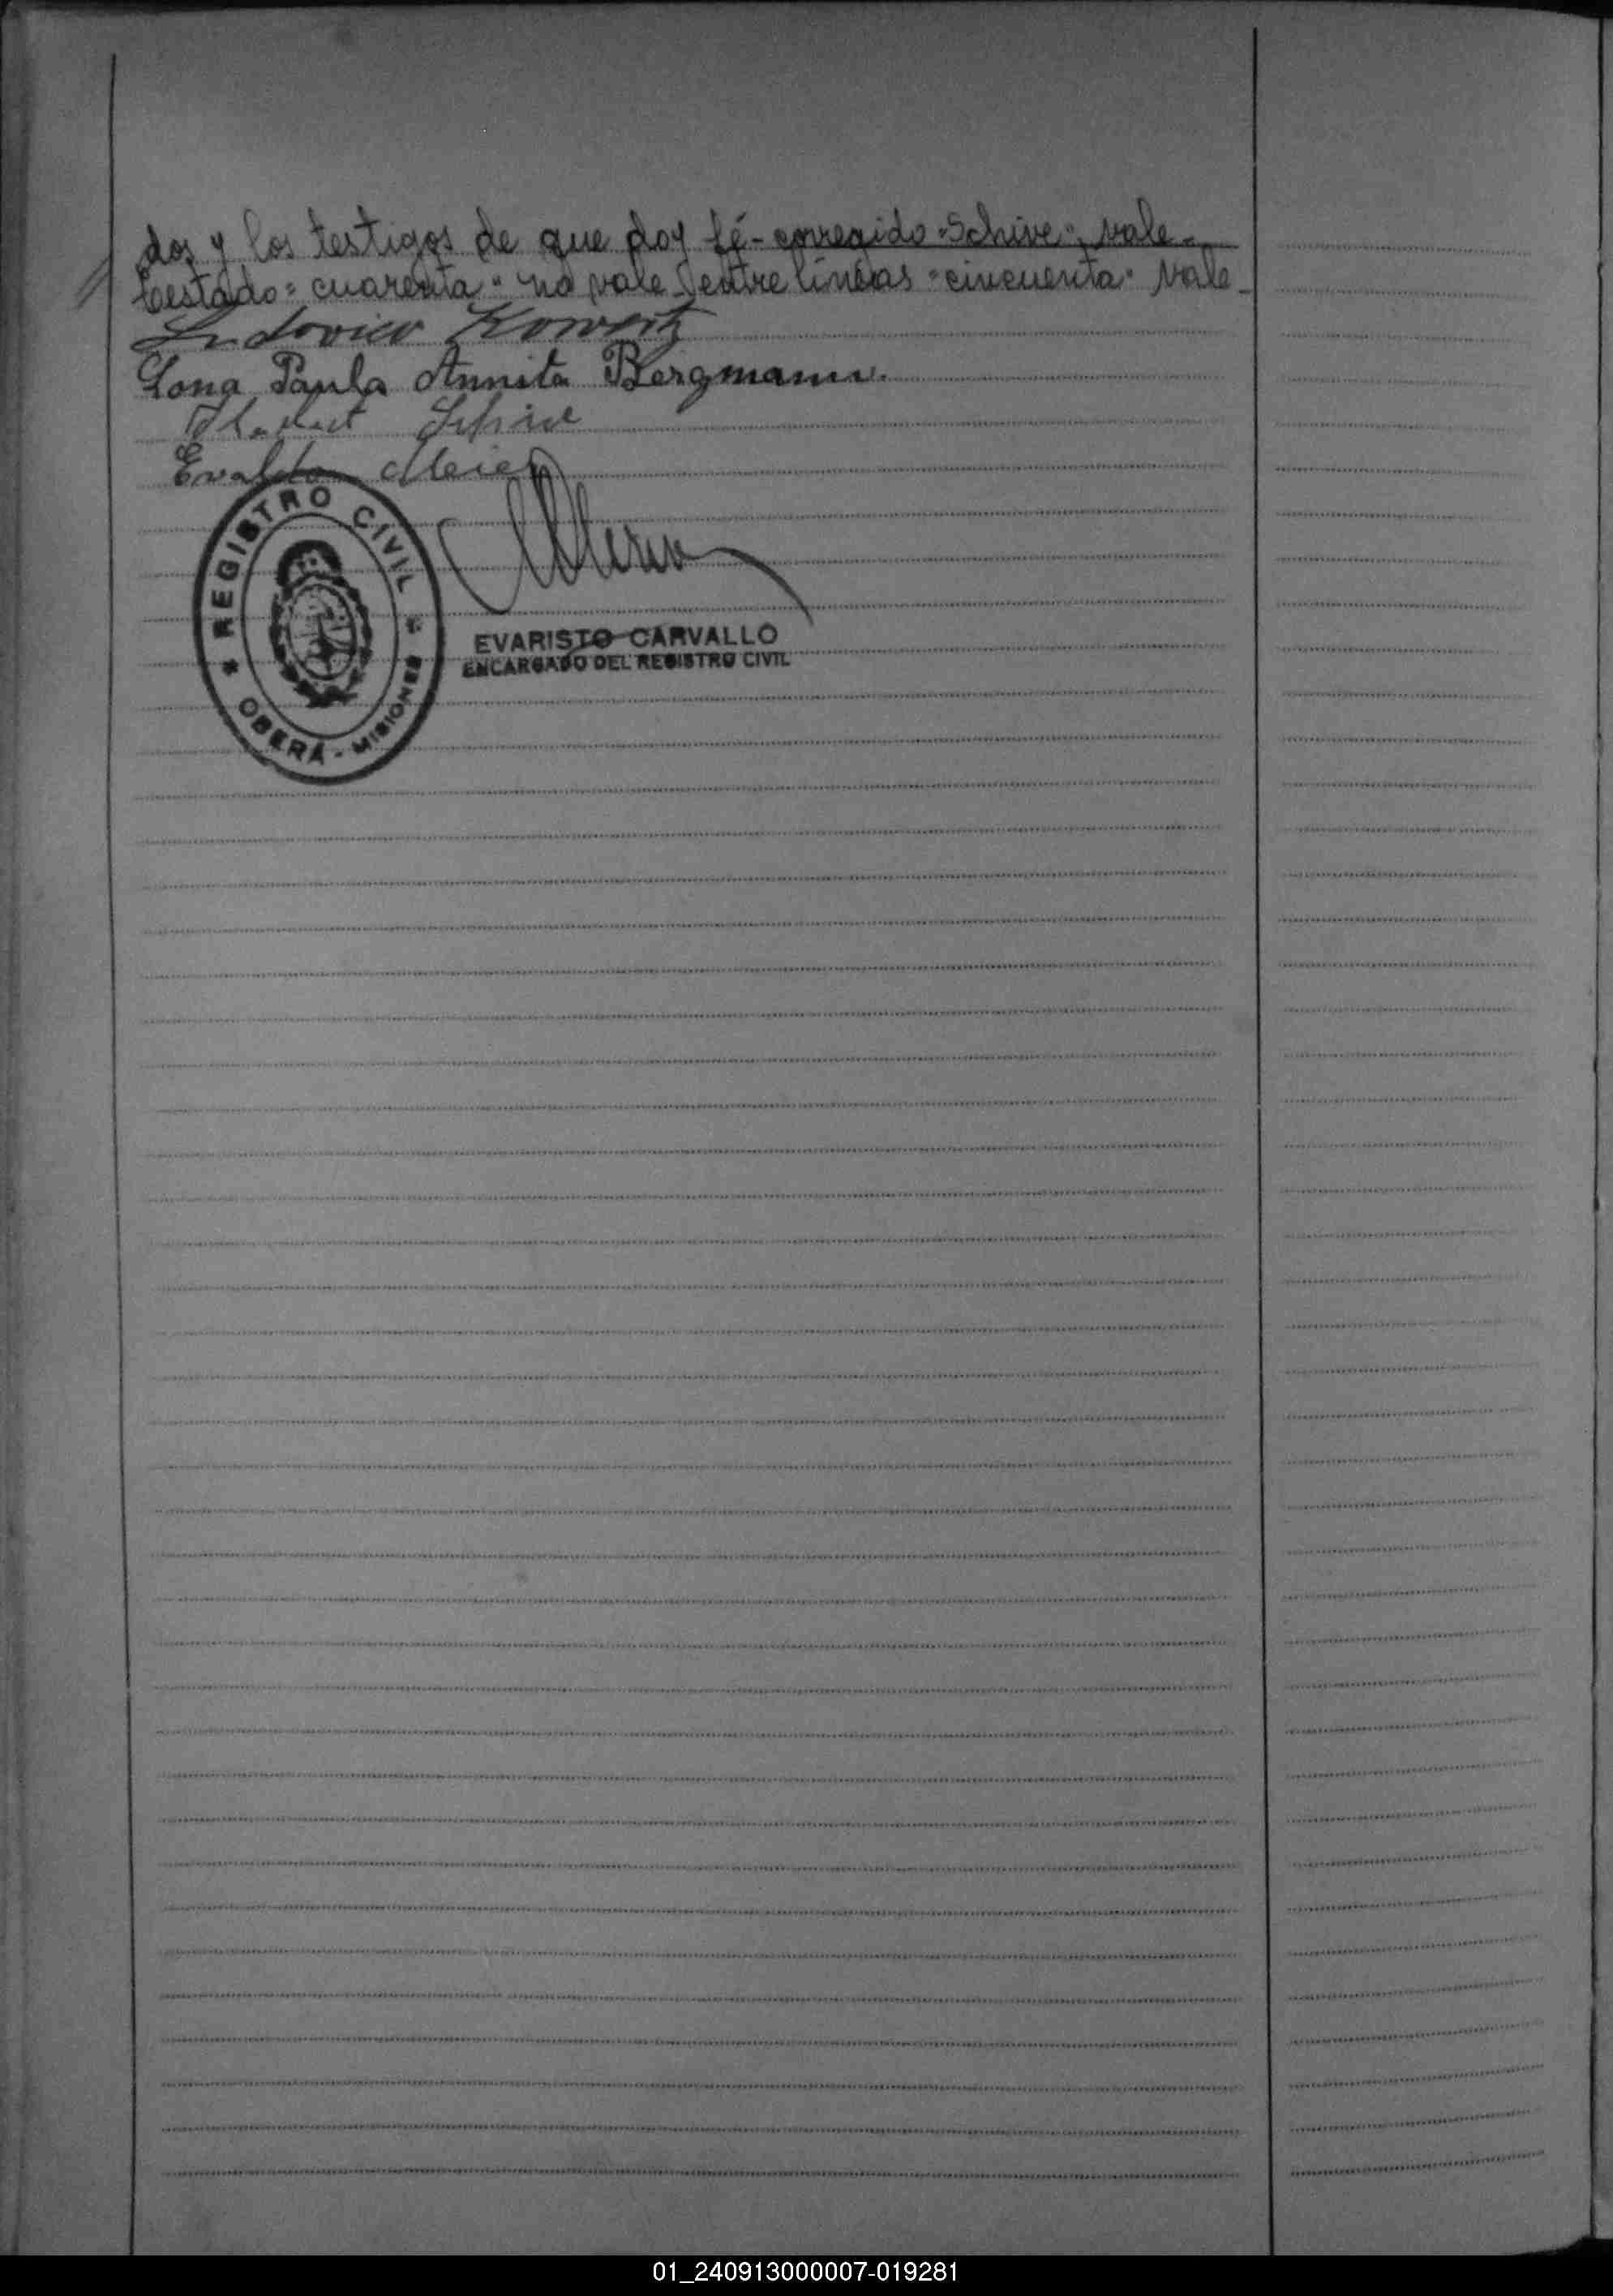 dos y los testigos de que doy fé - corregido "Schive", vale -
testado "cuarenta" no vale - entre líneas "cincuenta" vale -
Ludovico
Lona Paula Annita Bergmann.
Schive
Evaldo Meier
REGISTRO CIVIL
OBERÁ - MISIONES
EVARISTO CARVALLO
ENCARGADO DEL REGISTRO CIVIL
01_240913000007-019281